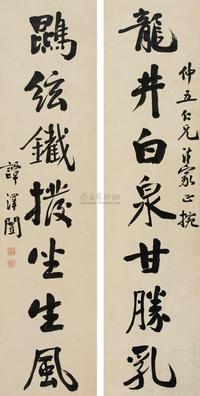 龍井白泉甘勝乳
仲五仁兄法家正捥
鵾絃鐵撥坐生風
譚澤闓